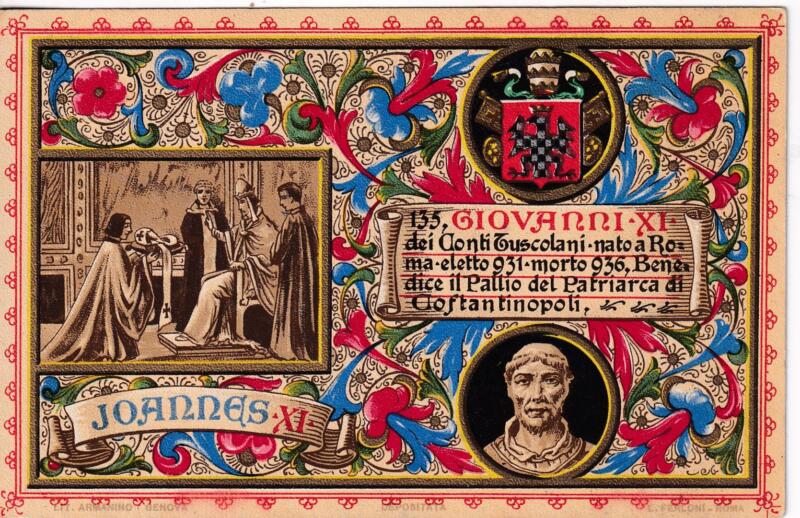 135, GIOVANNI·XI·
dei Conti Tuscolani·nato a Ro=
ma·eletto 931·morto 936, Bene=
dice il Pallio del Patriarca di
Costantinopoli,
JOANNES·XI·
LIT. ARMANINO - GENOVA
DEPOSITATA
L. FERLONI - ROMA